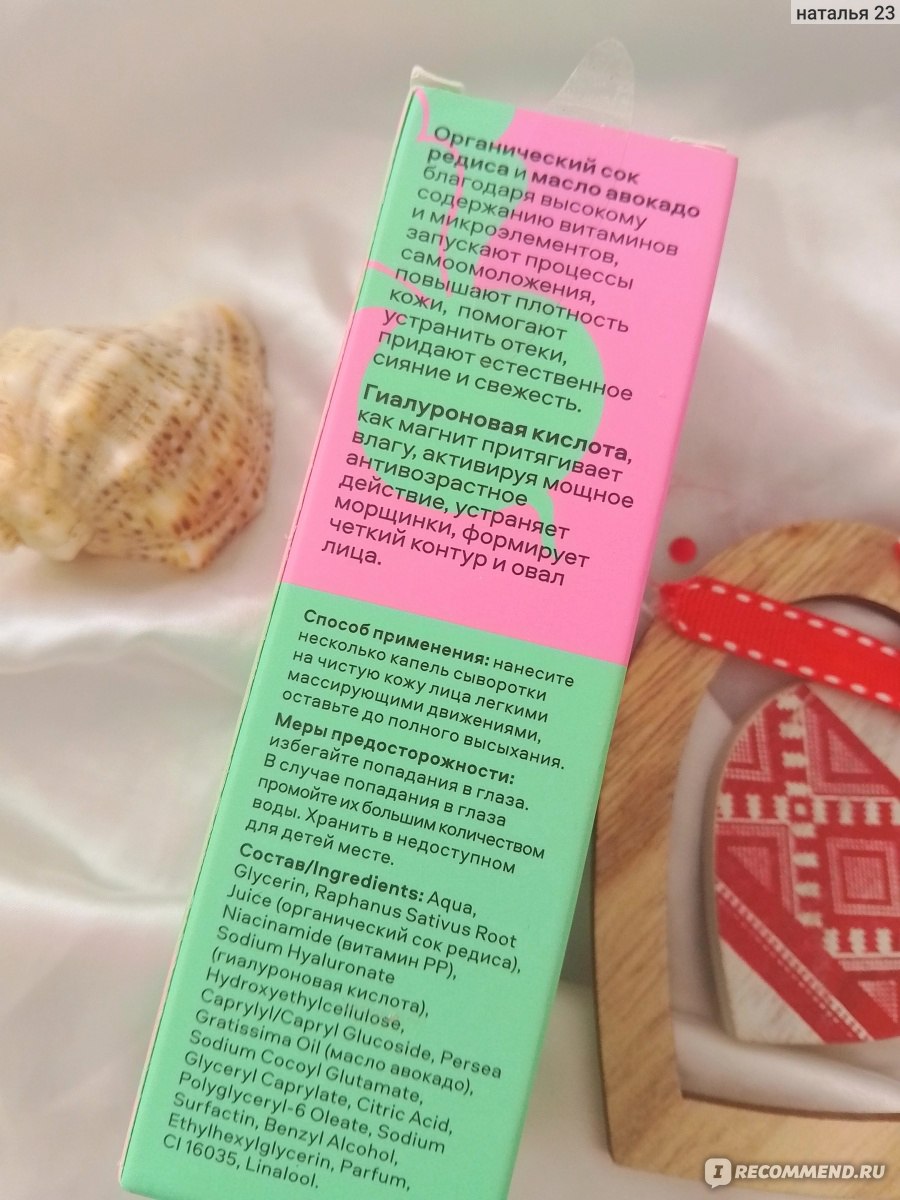 наталья 23
Органический сок
редиса и масло авокадо
благодаря высокому
содержанию витаминов
и микроэлементов,
запускают процессы
самоомоложения,
повышают плотность
кожи, помогают
устранить отеки,
придают естественное
сияние и свежесть.
Гиалуроновая кислота,
как магнит притягивает
влагу, активируя мощное
антивозрастное
действие, устраняет
морщинки, формирует
четкий контур и овал
лица.
Способ применения: нанесите
несколько капель сыворотки
на чистую кожу лица легкими
массирующими движениями,
оставьте до полного высыхания.
Меры предосторожности:
избегайте попадания в глаза.
В случае попадания в глаза
промойте их большим количеством
воды. Хранить в недоступном
для детей месте.
Состав/Ingredients: Aqua,
Glycerin, Raphanus Sativus Root
Juice (органический сок редиса),
Niacinamide (витамин PP),
Sodium Hyaluronate
(гиалуроновая кислота),
Hydroxyethylcellulose,
Caprylyl/Capryl Glucoside, Persea
Gratissima Oil (масло авокадо),
Sodium Cocoyl Glutamate,
Glyceryl Caprylate, Citric Acid,
Polyglyceryl-6 Oleate, Sodium
Surfactin, Benzyl Alcohol,
Ethylhexylglycerin, Parfum,
CI 16035, Linalool.
IRECOMMEND.RU